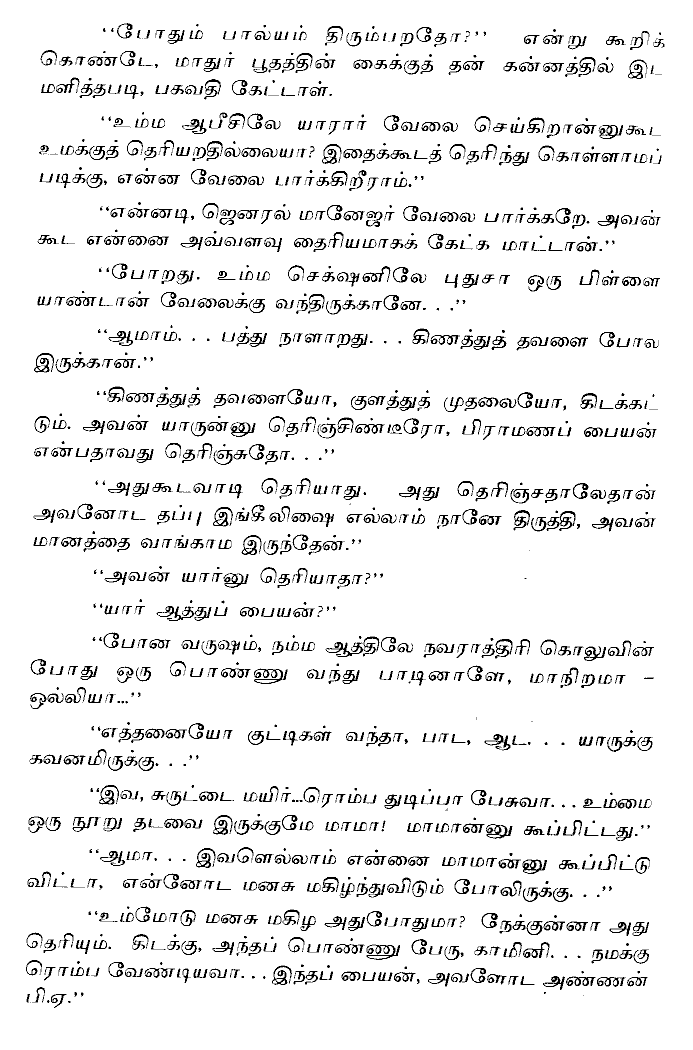 ‘‘போதும் பால்யம் திரும்பறதோ?’’ என்று கூறிக்
கொண்டே, மாதுர் பூதத்தின் கைக்குத் தன் கன்னத்தில் இட
மளித்தபடி, பகவதி கேட்டாள்.
‘‘உம்ம ஆபீசிலே யாரார் வேலை செய்கிறான்னுகூட
உமக்குத் தெரியறதில்லையா? இதைக்கூடத் தெரிந்து கொள்ளாமப்
படிக்கு, என்ன வேலை பார்க்கிறீராம்.’’
‘‘என்னடி, ஜெனரல் மானேஜர் வேலை பார்க்கறே. அவன்
கூட என்னை அவ்வளவு தைரியமாகக் கேட்க மாட்டான்.’’
‘‘போறது. உம்ம செக்‌ஷனிலே புதுசா ஒரு பிள்ளை
யாண்டான் வேலைக்கு வந்திருக்கானே. . .’’
‘‘ஆமாம். . . பத்து நாளாறது. . . கிணத்துத் தவளை போல
இருக்கான்.’’
‘‘கிணத்துத் தவளையோ, குளத்துத் முதலையோ, கிடக்கட்
டும். அவன் யாருன்னு தெரிஞ்சிண்டீரோ, பிராமணப் பையன்
என்பதாவது தெரிஞ்சுதோ. . .’’
‘‘அதுகூடவாடி தெரியாது. அது தெரிஞ்சதாலேதான்
அவனோட தப்பு இங்கீலிஷை எல்லாம் நானே திருத்தி, அவன்
மானத்தை வாங்காம இருந்தேன்.’’
‘‘அவன் யார்னு தெரியாதா?’’
‘‘யார் ஆத்துப் பையன்?’’
‘‘போன வருஷம், நம்ம ஆத்திலே நவராத்திரி கொலுவின்
போது ஒரு பொண்ணு வந்து பாடினாளே, மாநிறமா –
ஒல்லியா...’’
‘‘எத்தனையோ குட்டிகள் வந்தா, பாட, ஆட. . . யாருக்கு
கவனமிருக்கு. . .’’
‘‘இவ, சுருட்டை மயிர்...ரொம்ப துடிப்பா பேசுவா. . . உம்மை
ஒரு நூறு தடவை இருக்குமே மாமா! மாமான்னு கூப்பிட்டது.’’
‘‘ஆமா. . . இவளெல்லாம் என்னை மாமான்னு கூப்பிட்டு
விட்டா, என்னோட மனசு மகிழ்ந்துவிடும் போலிருக்கு. . .’’
‘‘உம்மோடு மனசு மகிழ அதுபோதுமா? நேக்குன்னா அது
தெரியும். கிடக்கு, அந்தப் பொண்ணு பேரு, காமினி. . . நமக்கு
ரொம்ப வேண்டியவா. . . இந்தப் பையன், அவளோட அண்ணன்
பி.ஏ.’’